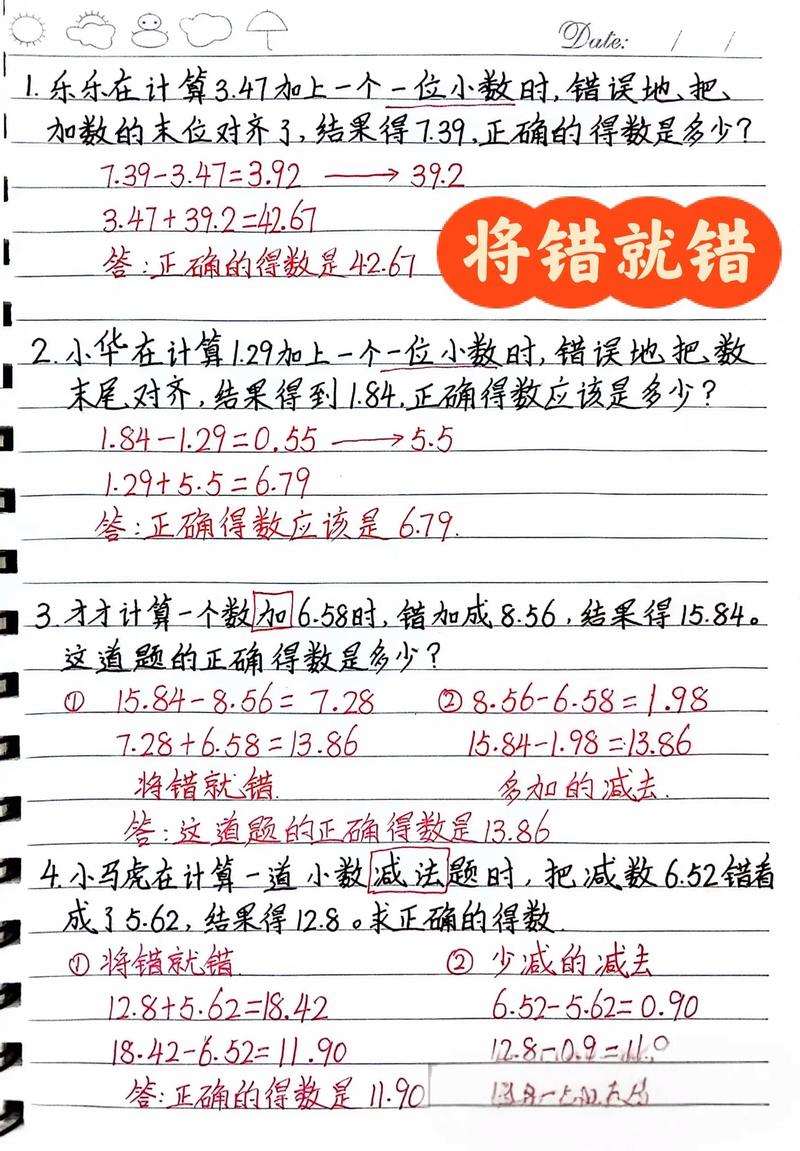 Date: / /
1. 乐乐在计算3.47加上一个一位小数时,错误地把
加数的末位对齐了,结果得7.39,正确的得数是多少?
7.39-3.47=3.92 → 39.2
3.47+39.2=42.67
答:正确的得数是42.67
将错就错
2. 小华在计算1.29加上一个一位小数时,错误地把数
末尾对齐,结果得到1.84,正确得数应该是多少?
1.84-1.29=0.55 → 5.5
1.29+5.5=6.79
答:正确得数应该是 6.79.
3.才才计算一个数加6.58时,错加成8.56,结果得15.84。
这道题的正确得数是多少?
① 15.84-8.56= 7.28 ② 8.56-6.58=1.98
7.28+6.58=13.86 15.84-1.98=13.86
将错就错. 多加的减去.
答:这道题的正确得数是13.86
4.小马虎在计算一道小数减法题时,把减数6.52错看
成了5.62,结果得12.8。求正确的得数.
① 将错就错. ② 少减的减去
12.8+5.62=18.42 6.52-5.62=0.90
18.42-6.52=11.90 12.8-0.9=11.9
答:正确的得数是 11.90